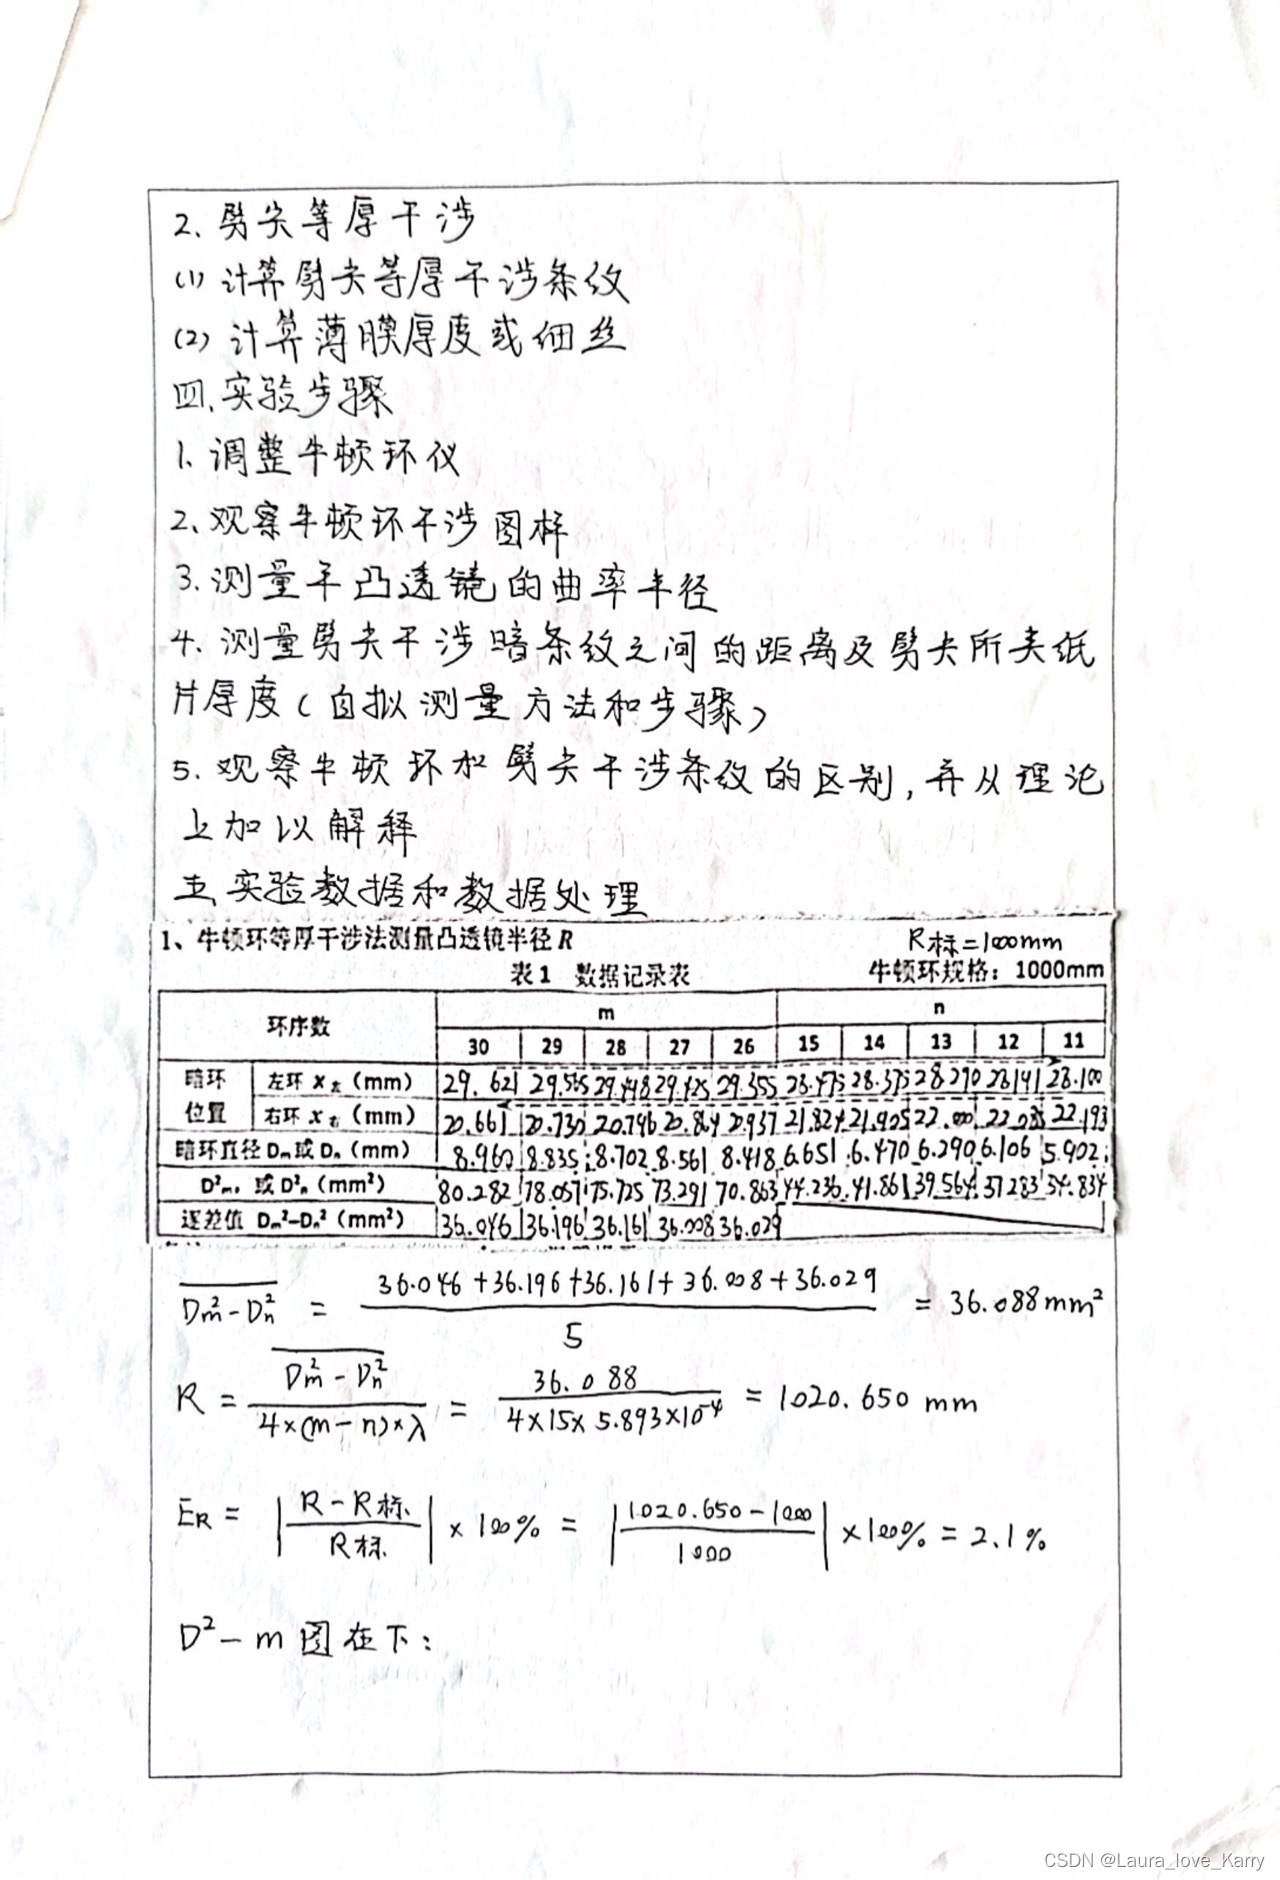 2. 劈尖等厚干涉
(1) 计算劈尖等厚干涉条纹
(2) 计算薄膜厚度或细丝
四.实验步骤
1. 调整牛顿环仪
2. 观察牛顿环干涉图样
3. 测量平凸透镜的曲率半径
4. 测量劈尖干涉暗条纹之间的距离及劈尖所夹纸
片厚度(自拟测量方法和步骤)
5. 观察牛顿环和劈尖干涉条纹的区别,并从理论
上加以解释
五.实验数据和数据处理
1、牛顿环等厚干涉法测量凸透镜半径R R标=1000mm
表1 数据记录表 牛顿环规格:1000mm
环序数 m n
30 29 28 27 26 15 14 13 12 11
暗环位置 左环 X左 (mm) 29.621 29.565 29.448 29.425 29.355 28.475 28.375 28.290 28.191 28.100
右环 X右 (mm) 20.661 20.730 20.746 20.937 21.824 21.905 22.000 22.193
暗环直径 Dm或 Dn (mm) 8.960 8.835 8.702 8.561 8.418 6.651 6.470 6.290 6.106 5.902
D²m,或 D²n (mm²) 80.282 78.057 75.725 73.291 70.863 44.236 41.861 39.564 37.283 34.834
逐差值 Dm²-Dn² (mm²) 36.046 36.196 36.161 36.008 36.029
Dm²-Dn² = (36.046+36.196+36.161+36.008+36.029)/5 = 36.088mm²
R = (Dm²-Dn²)/(4×(m-n)×λ) = 36.088/(4×15×5.893×10⁻⁴) = 1020.650 mm
ER = |(R-R标)/R标| ×100% = |(1020.650-1000)/1000| ×100% = 2.1%
D²-m 图在下:
CSDN @Laura_love_Karry